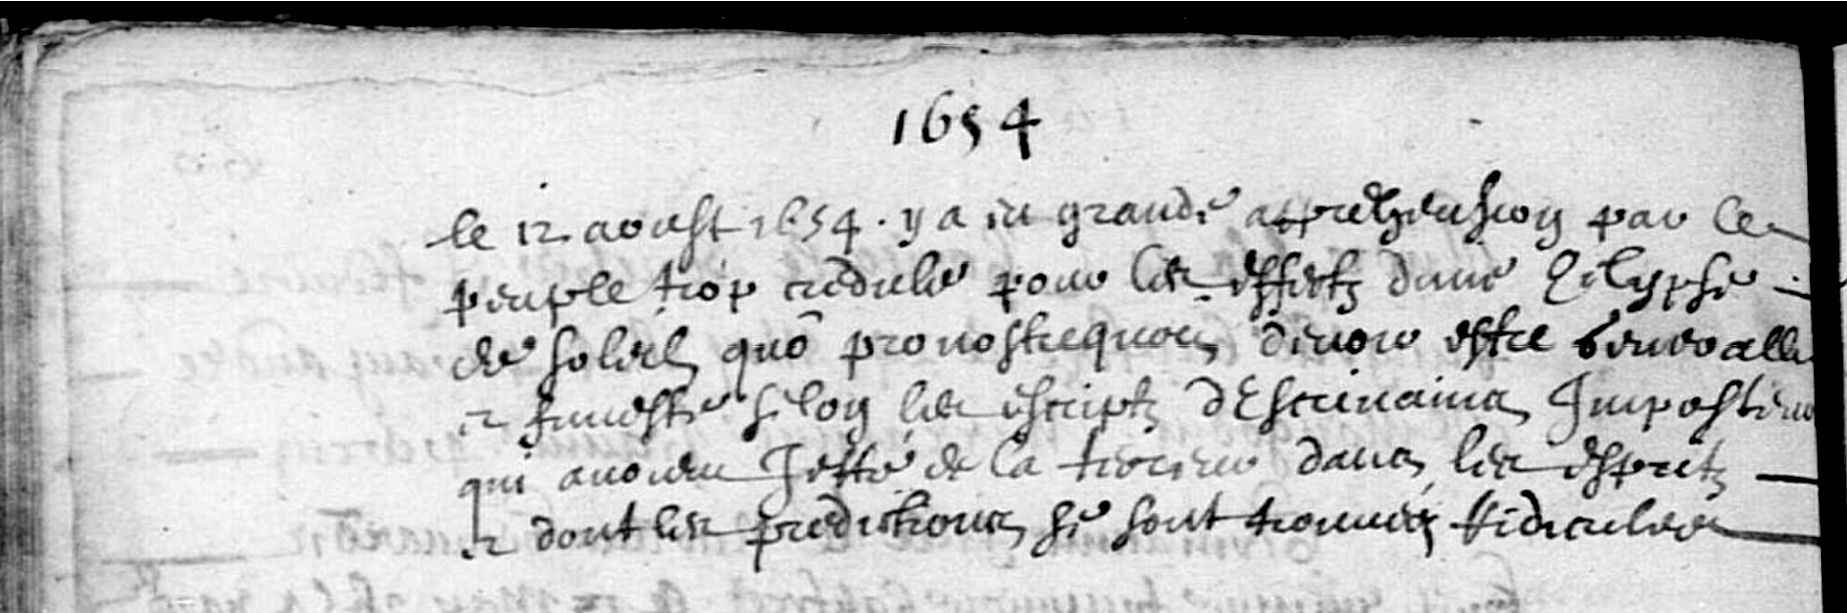 1654
le 12 aoust 1654. y a eu grande apprehension par le
peuple trop credule pour les effects dune Eclypse
de soleil quo pronostiquoit devoir estre
et funeste selon les escripts d'Escrivains Imposteurs
qui avoient Jetté de la terreur dans les esprits
et dont les predictions se sont trouvées Ridicules